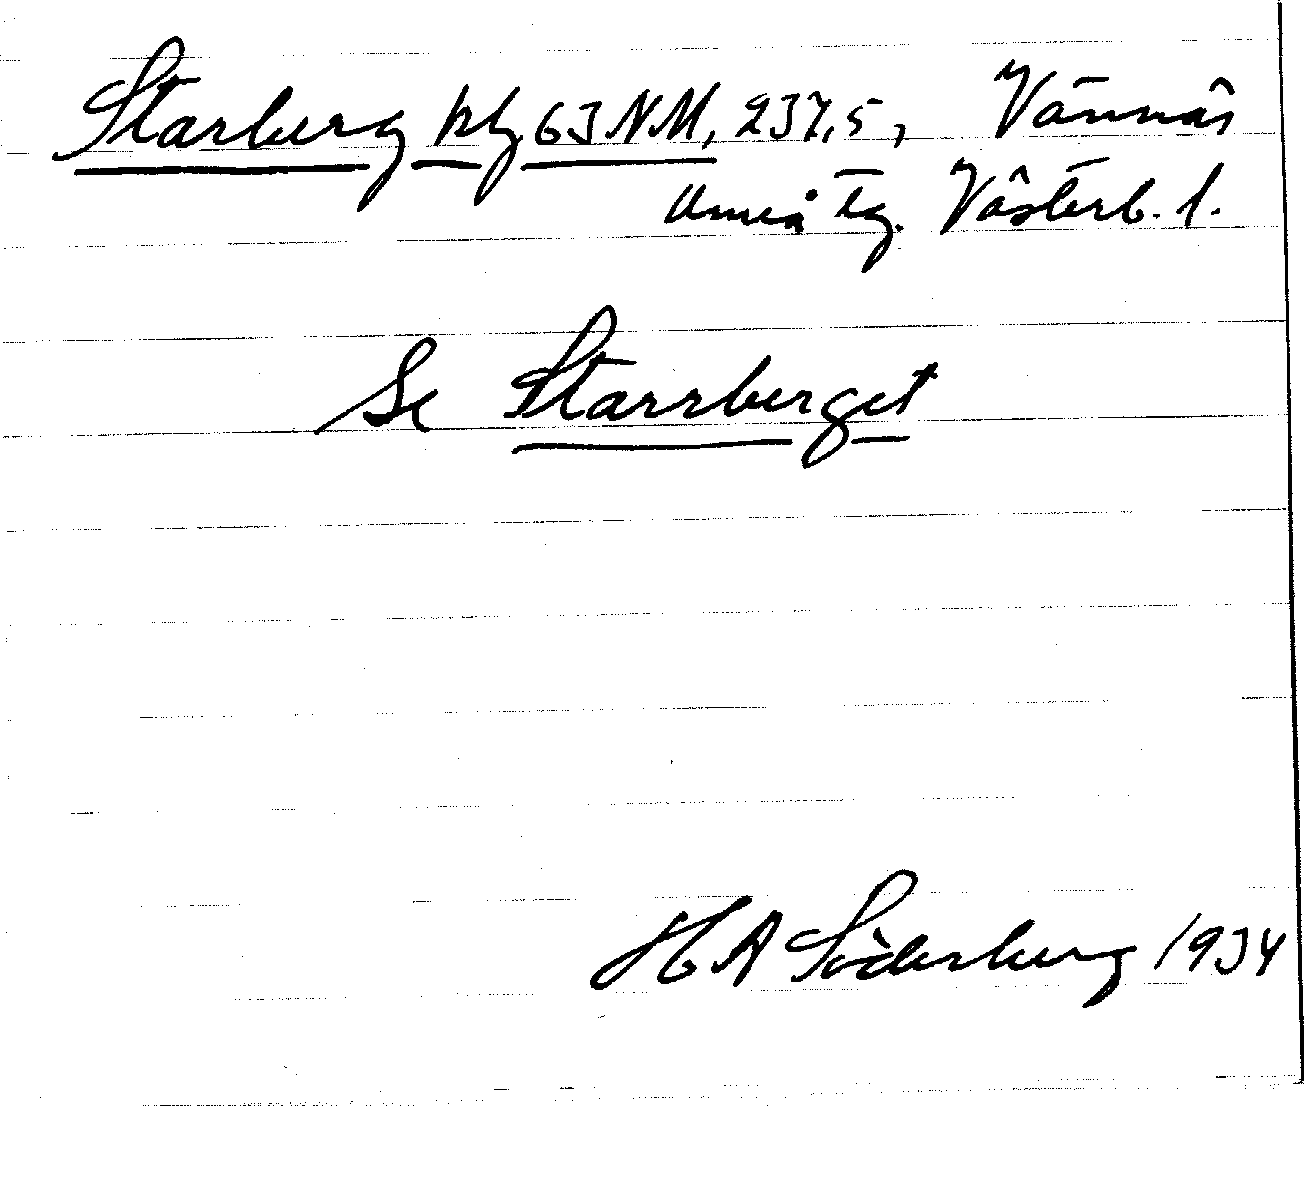 Starberg kbl 63 NM, 237,5, Vännäs
Umeå tg. Västerb. l.
Se Starrberget
H A Söderberg 1934